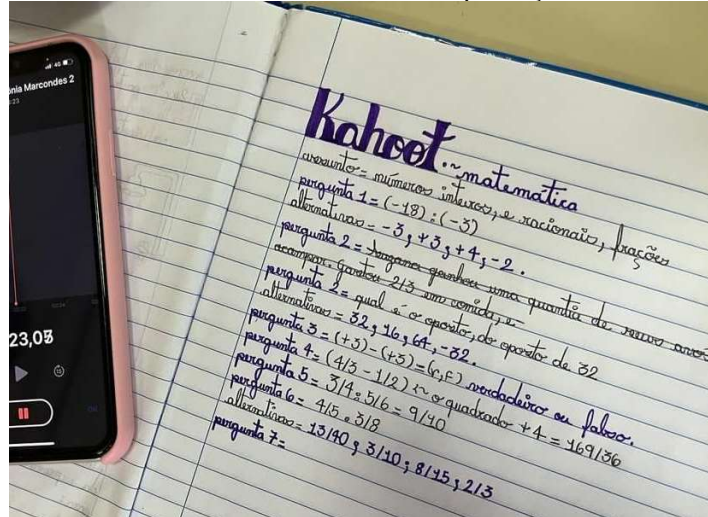 4G
onia Marcondes 2
23,05
Kahoot ~ matemática
assunto = números inteiros, e racionais, frações
pergunta 1 = (-18) : (-3)
alternativas = -3 ; +3 ; +4 ; -2 .
pergunta 2 = ganhou uma quantia de seus
acampar. Gastou 2/3 em comida, e
pergunta 2 = qual é o oposto, do oposto de 32
alternativas = 32 ; 16 ; 64 ; -32 .
pergunta 3 = (+3) - (+3) = (C,F) verdadeiro ou falso.
pergunta 4 = (4/3 - 1/2) ~ o quadrado + 4 = 169/36
pergunta 5 = 3/4 : 5/6 = 9/10
pergunta 6 = 4/5 . 3/8
alternativas = 13/40 ; 3/10 ; 8/15 ; 2/3
pergunta 7 =